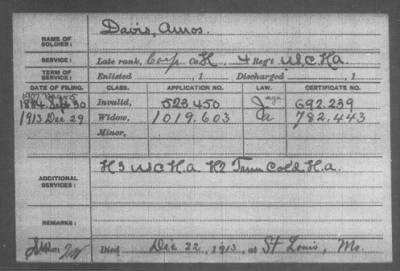 NAME OF SOLDIER: Davis, Amos.
SERVICE: Late rank, Corp Co H, 4 Reg't U.S.C.H.A.
TERM OF SERVICE: Enlisted , 1 Discharged , 1
DATE OF FILING. CLASS. APPLICATION NO. LAW. CERTIFICATE NO.
1884 Sept 30 Invalid, 523.450 692.239
1913 Dec 29 Widow, 1019.603 782.443
Minor,
ADDITIONAL SERVICES: H3 U.S.C.H.a. H2 Tenn Cold H.a.
REMARKS:
Died Dec 22, 1913, at St Louis, Mo.